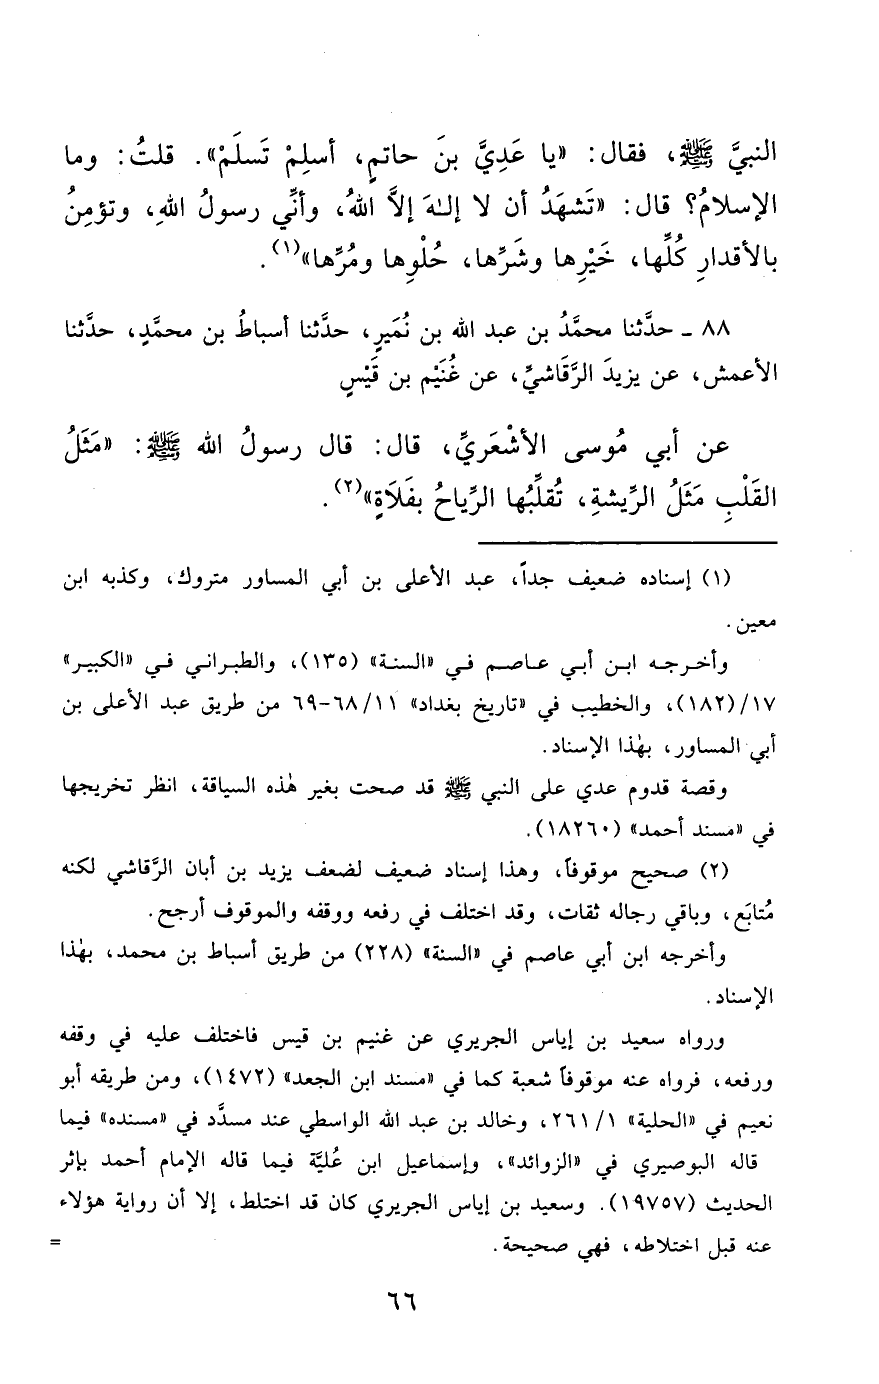 النبيَّ ﷺ، فقال: «يا عَدِيَّ بنَ حاتمٍ، أسلِمْ تَسلَمْ». قلتُ: وما
الإسلامُ؟ قال: «تَشهَدُ أن لا إلٰهَ إلاَّ اللهُ، وأنِّي رسولُ اللهِ، وتؤمِنُ
بالأقدارِ كُلِّها، خَيْرِها وشَرِّها، حُلْوِها ومُرِّها»(١).
٨٨ ـ حدَّثنا محمَّدُ بن عبد الله بن نُمَيرٍ، حدَّثنا أسباطُ بن محمَّدٍ، حدَّثنا
الأعمش، عن يزيدَ الرَّقَاشيِّ، عن غُنَيْم بن قَيْسٍ
عن أبي مُوسى الأشْعَريِّ، قال: قال رسولُ الله ﷺ: «مَثَلُ
القَلْبِ مَثَلُ الرِّيشةِ، تُقلِّبُها الرِّياحُ بفَلَاةٍ»(٢).
(١) إسناده ضعيف جداً، عبد الأعلى بن أبي المساور متروك، وكذبه ابن
معين.
وأخرجه ابن أبي عاصم في «السنة» (١٣٥)، والطبراني في «الكبير»
١٧/(١٨٢)، والخطيب في «تاريخ بغداد» ١١/ ٦٨-٦٩ من طريق عبد الأعلى بن
أبي المساور، بهٰذا الإسناد.
وقصة قدوم عدي على النبي ﷺ قد صحت بغير هٰذه السياقة، انظر تخريجها
في «مسند أحمد» (١٨٢٦٠).
(٢) صحيح موقوفاً، وهذا إسناد ضعيف لضعف يزيد بن أبان الرَّقاشي لكنه
مُتابَع، وباقي رجاله ثقات، وقد اختلف في رفعه ووقفه والموقوف أرجح.
وأخرجه ابن أبي عاصم في «السنة» (٢٢٨) من طريق أسباط بن محمد، بهٰذا
الإسناد.
ورواه سعيد بن إياس الجريري عن غنيم بن قيس فاختلف عليه في وقفه
ورفعه، فرواه عنه موقوفاً شعبة كما في «مسند ابن الجعد» (١٤٧٢)، ومن طريقه أبو
نعيم في «الحلية» ١/ ٢٦١، وخالد بن عبد الله الواسطي عند مسدَّد في «مسنده» فيما
قاله البوصيري في «الزوائد»، وإسماعيل ابن عُليَّة فيما قاله الإمام أحمد بإثر
الحديث (١٩٧٥٧). وسعيد بن إياس الجريري كان قد اختلط، إلا أن رواية هؤلاء
عنه قبل اختلاطه، فهي صحيحة. =
٦٦